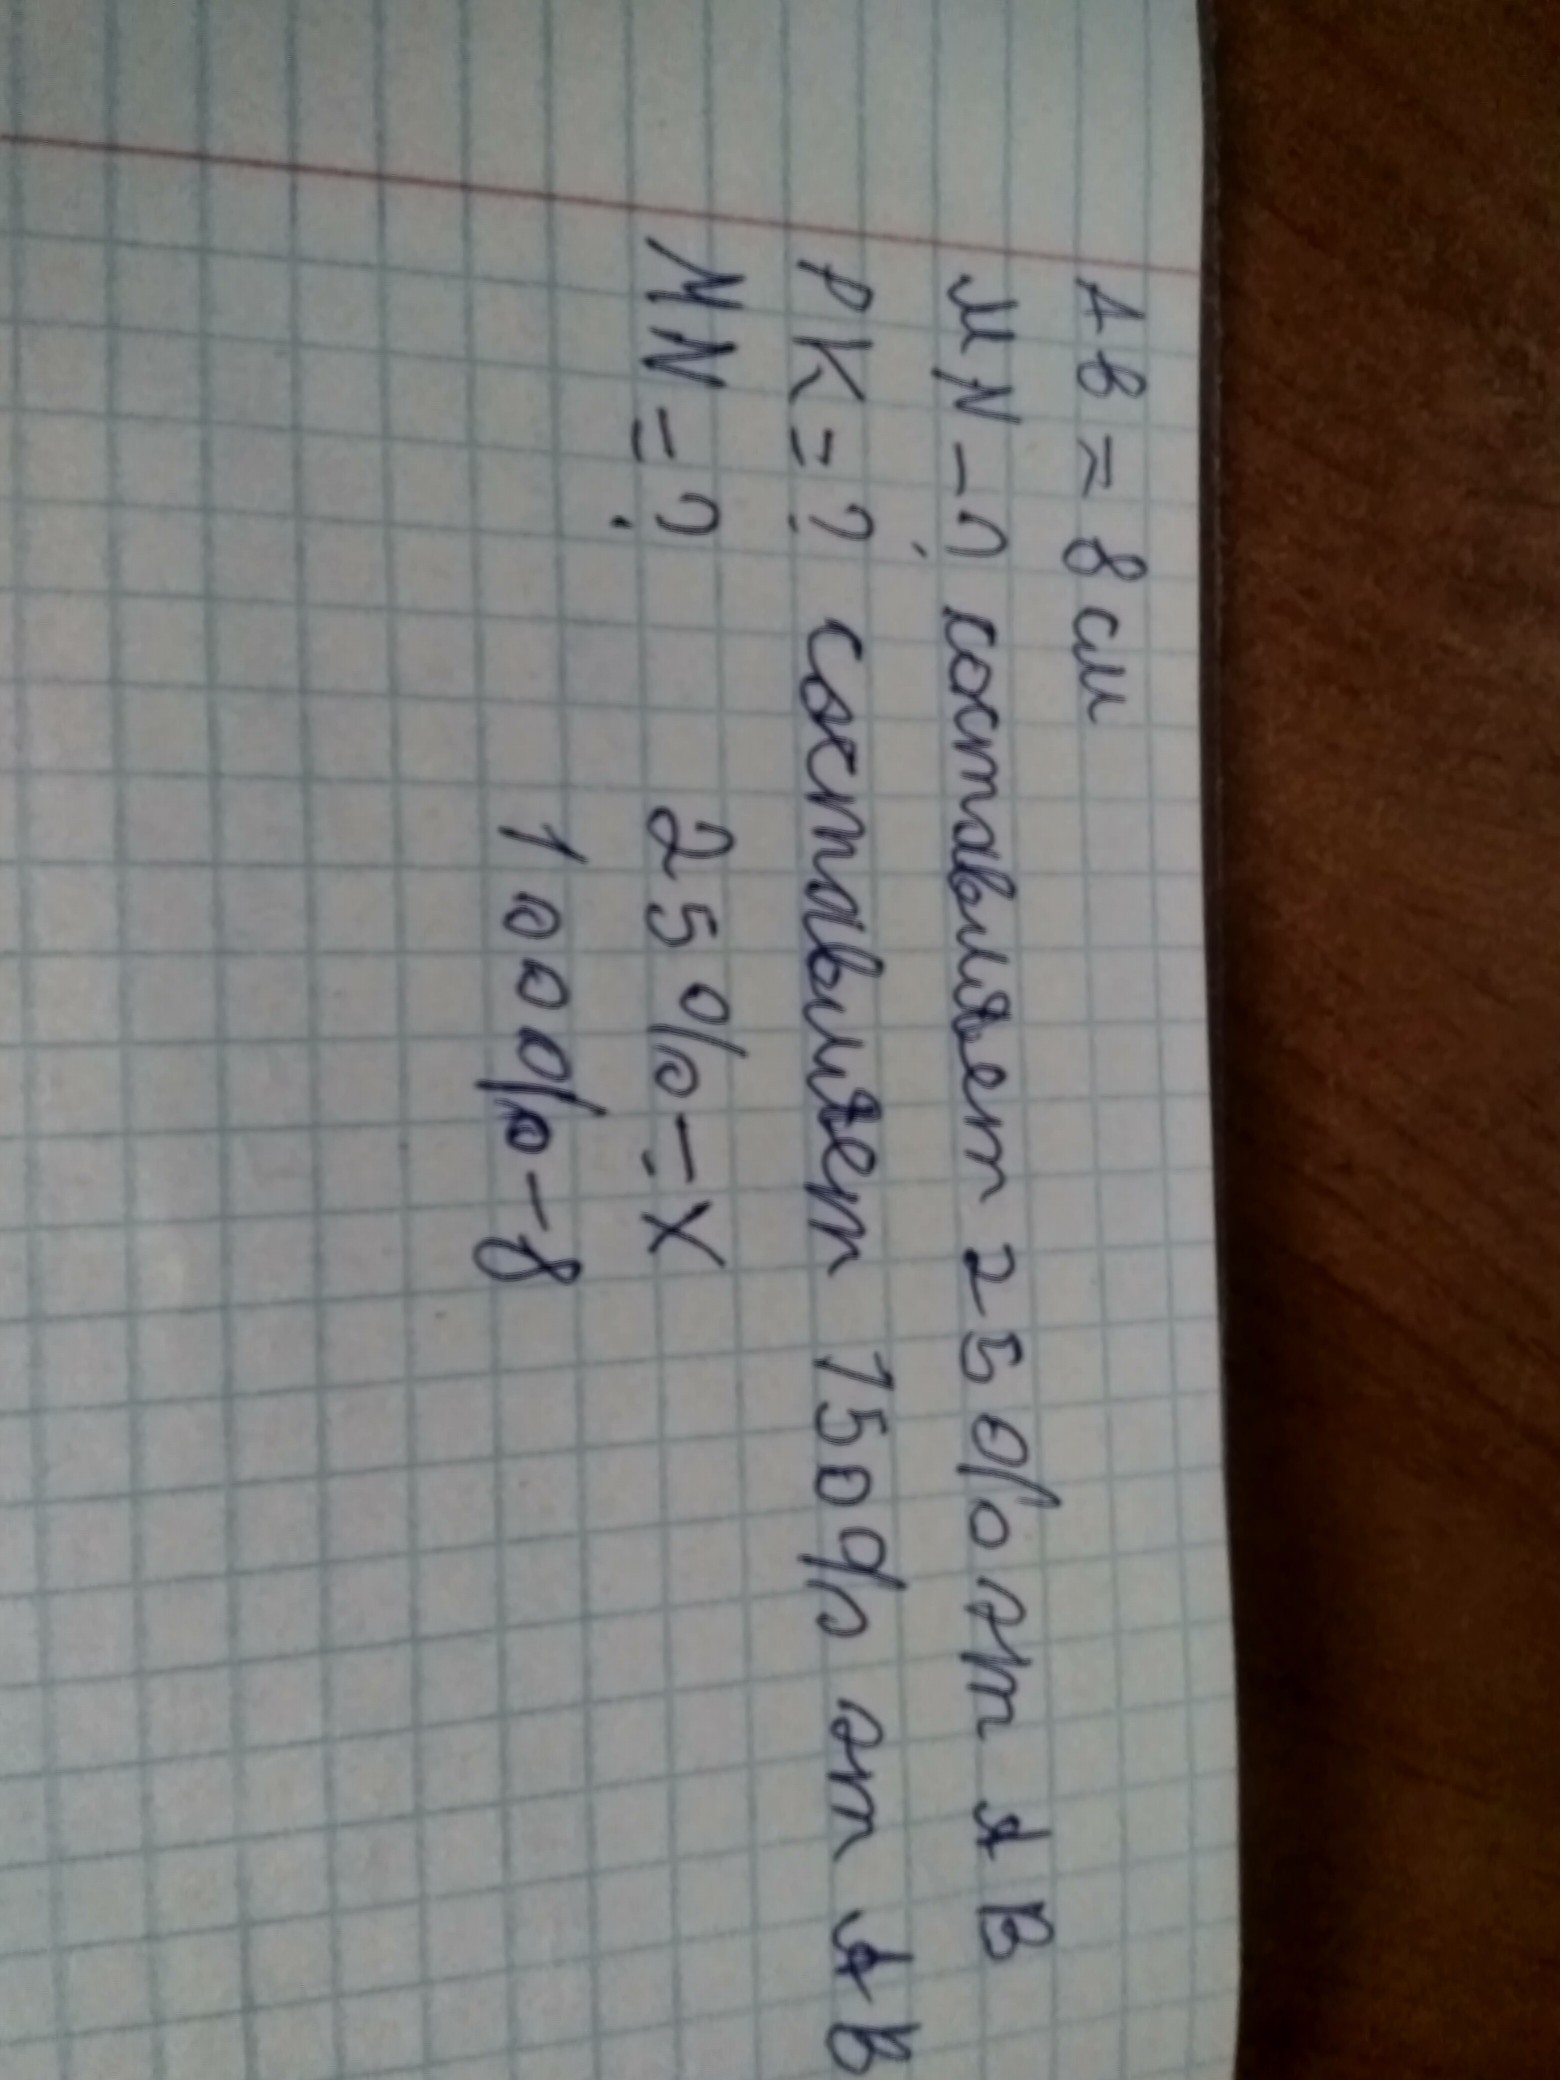 AB = 8 см
MN - ? составляет 25% от AB
PK = ? составляет 150% от AB
MN = ? 25% - x
100% - 8